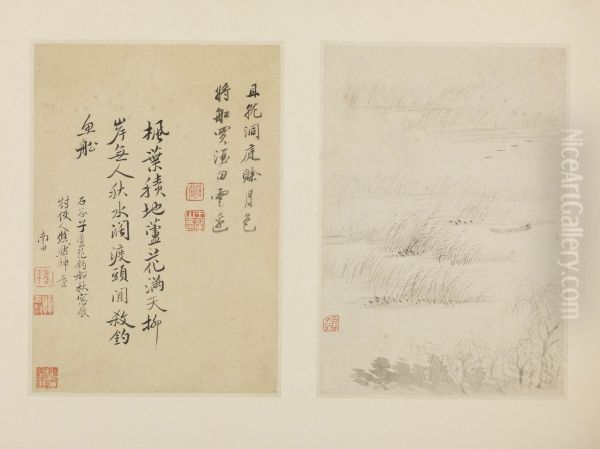 且就洞庭賒月色
將船買酒白雲邊
楓葉積地蘆花滿天柳
岸無人秋水闊渡頭閒殺釣
魚船
石谷子蘆花釣船秋窓展
對使人悠然神遠
南田
NiceArtGallery.com